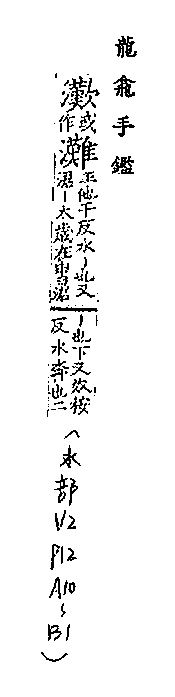 龍龕手鑑
𤅩或作灘正他干反水~也又
涒~太歲在申曰涒
~也下又奴按
反水奔也二
(水部
V2
P12
A10
~
B1)